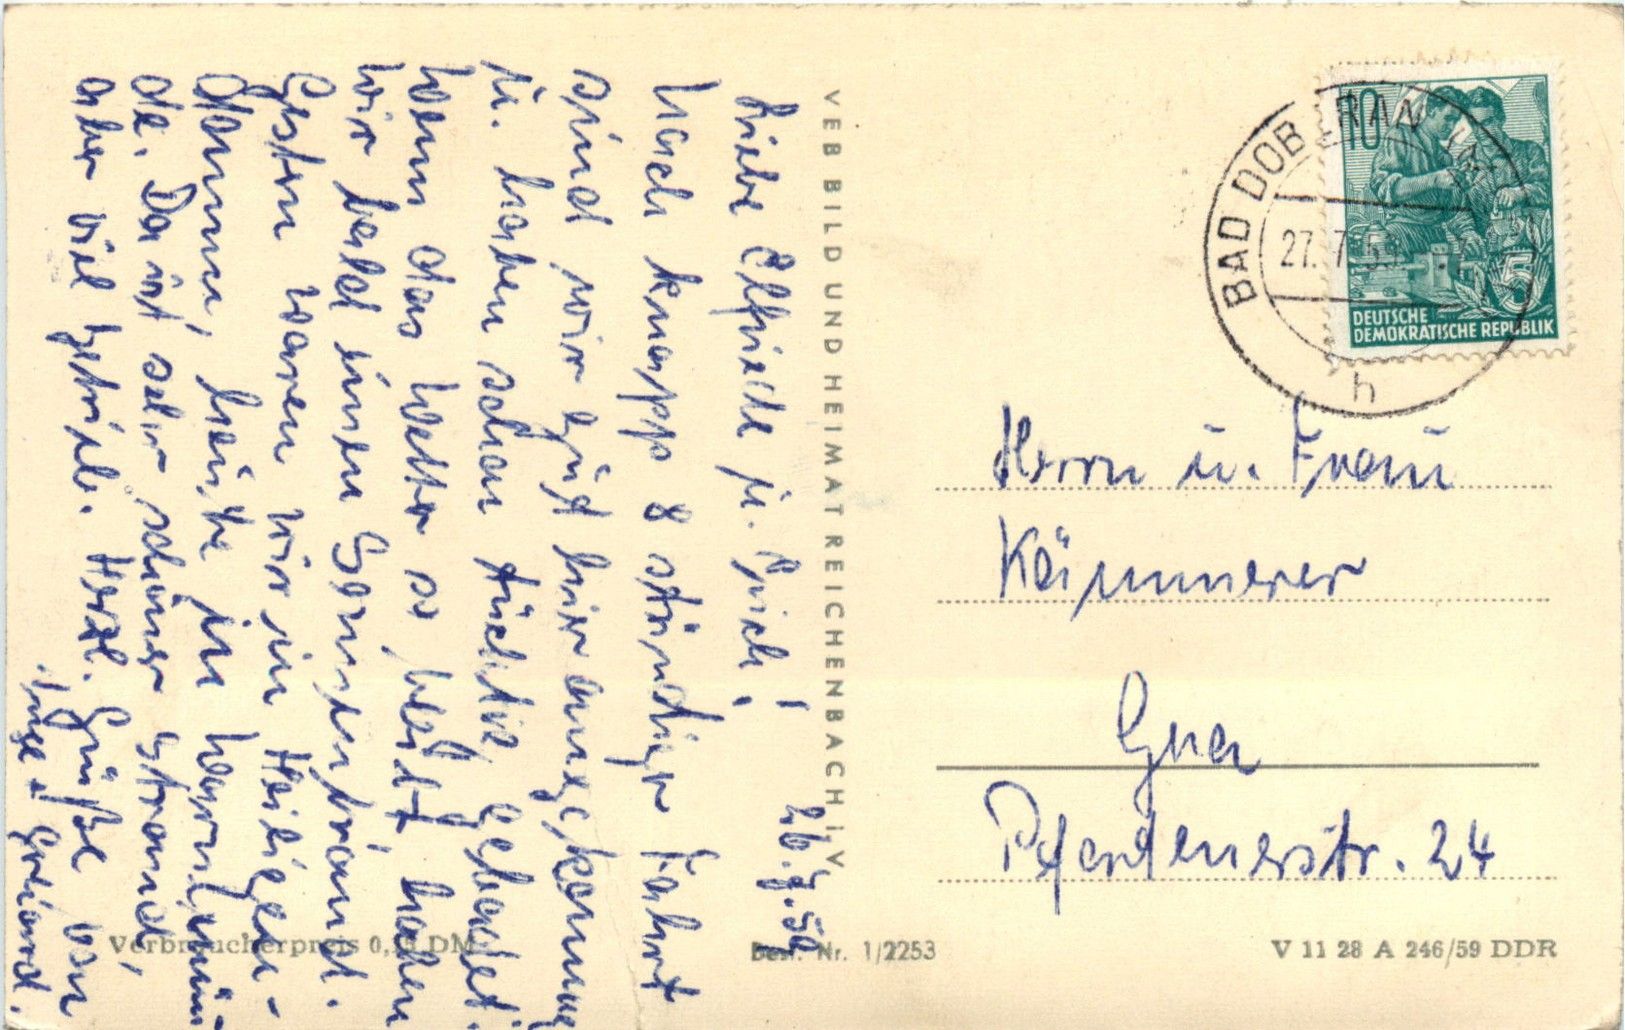 26.7.59
Liebe Elfriede u. Erich!
Nach knapp 8 stündiger Fahrt
sind wir gut hier angekommen
u. haben schon tüchtig gebadet.
Wenn das Wetter so bleibt haben
wir bald einen Sonnenbrand.
Gestern waren wir in Heiligen-
damm, heute in Warnemün-
de. Da ist sehr schöner Strand,
aber viel Betrieb. Herzl. Grüße von
Inge + Gerhard.
VEB BILD UND HEIMAT REICHENBACH i. V.
BAD DOBERAN
27.7.59
h
10
5
DEUTSCHE
DEMOKRATISCHE REPUBLIK
Herrn u. Frau
Kämmerer
Gera
24
Verbraucherpreis 0,15 DM
Best. Nr. 1/2253
V 11 28 A 246/59 DDR